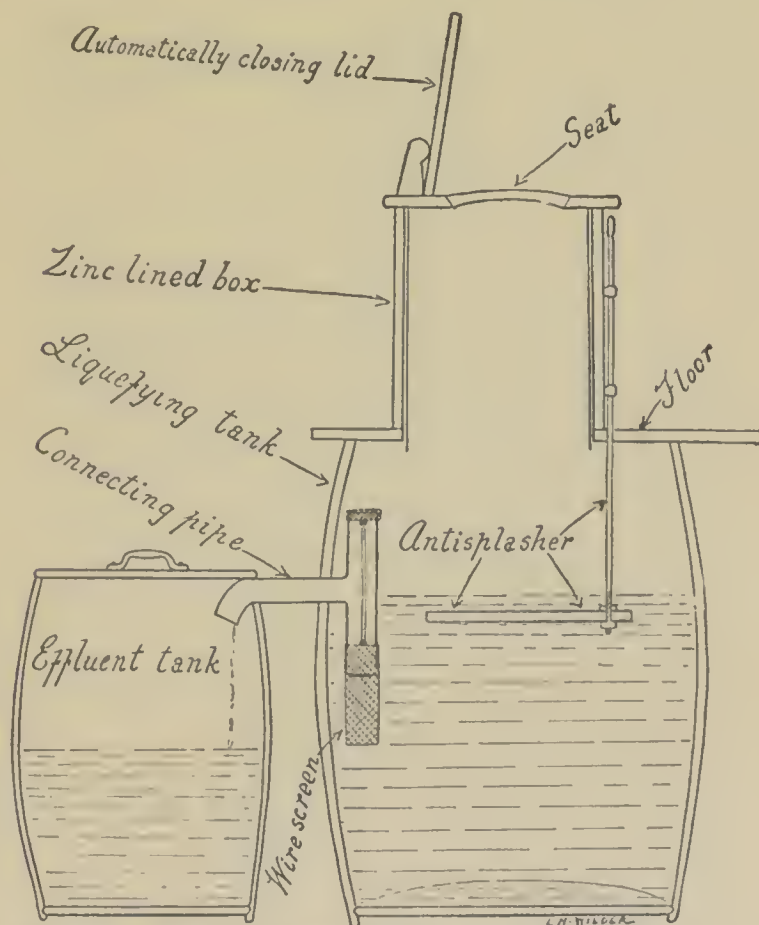 Automatically closing lid
Seat
Zinc lined box
Liquefying tank
Floor
Connecting pipe
Antisplasher
Effluent tank
Wire screen